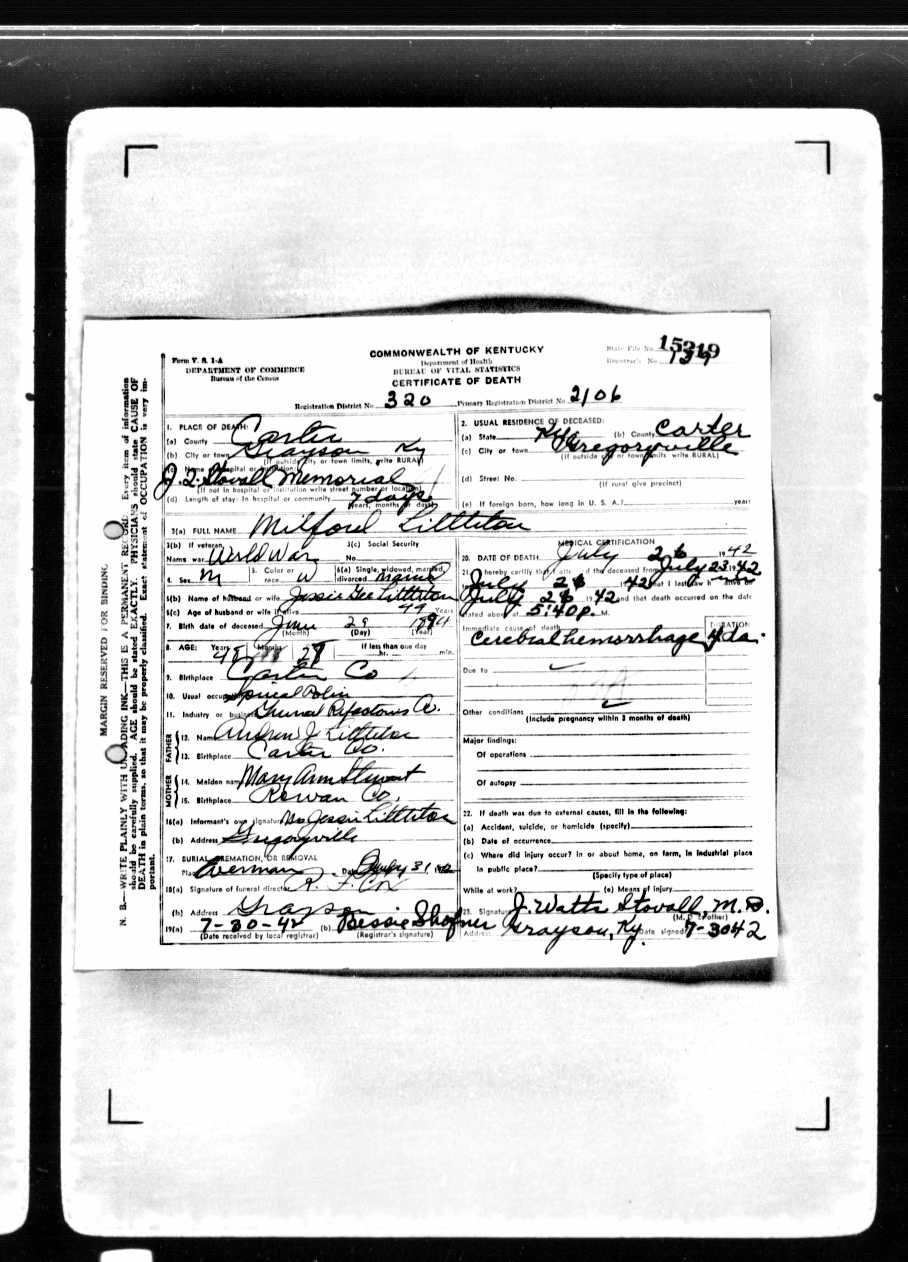 Form V. S. 1-A
DEPARTMENT OF COMMERCE
Bureau of the Census
COMMONWEALTH OF KENTUCKY
Department of Health
BUREAU OF VITAL STATISTICS
CERTIFICATE OF DEATH
State File No. 15319
Registrar's No. 139
Registration District No. 320 Primary Registration District No. 2106
1. PLACE OF DEATH:
(a) County Carter
(b) City or town Grayson Ky
(If outside city or town limits, write RURAL)
(c) Name of hospital or institution:
J. Q. Stovall Memorial
(If not in hospital or institution write street number or location)
(d) Length of stay: In hospital or community 7 days
(years, months or days)
2. USUAL RESIDENCE OF DECEASED:
(a) State Ky. (b) County Carter
(c) City or town Gregoryville
(If outside city or town limits write RURAL)
(d) Street No.
(If rural give precinct)
(e) If foreign born, how long in U. S. A.? years
3(a) FULL NAME Milford Littleton
3(b) If veteran, 3(c) Social Security
Name war World War No.
4. Sex M 5. Color or race W 6(a) Single, widowed, married, divorced Married
6(b) Name of husband or wife Jessie Gee Littleton
6(c) Age of husband or wife if alive 49 Years
7. Birth date of deceased June 29 1894
(Month) (Day) (Year)
8. AGE: Years 48 Months Days 27 If less than one day
hr. min.
9. Birthplace Carter Co
10. Usual occupation
11. Industry or business General Refractories Co.
FATHER
12. Name Andrew J Littleton
13. Birthplace Carter Co.
MOTHER
14. Maiden name Mary Ann Stewart
15. Birthplace Rowan Co.
16(a) Informant's own signature Mrs Jessie Littleton
(b) Address Gregoryville
17. BURIAL, CREMATION, OR REMOVAL
Place Overman Date July 31 1942
18(a) Signature of funeral director R. F. Cox
(b) Address Grayson
19(a) 7-30-42 (b) Bessie Shafner
(Date received by local registrar) (Registrar's signature)
MEDICAL CERTIFICATION
20. DATE OF DEATH July 26 1942
21. I hereby certify that I attended the deceased from July 23 1942
July 26 42 that I last saw h alive on
July 26 1942 and that death occurred on the date
stated above at 5:40 p. M.
Immediate cause of death DURATION
cerebral hemorrhage 4 da.
Due to
Other conditions
(Include pregnancy within 3 months of death)
Major findings:
Of operations
Of autopsy
22. If death was due to external causes, fill in the following:
(a) Accident, suicide, or homicide (specify)
(b) Date of occurrence
(c) Where did injury occur? in or about home, on farm, in industrial place
in public place?
(Specify type of place)
While at work? (e) Means of injury
23. Signature J. Watts Stovall, M. D.
(M. D. or other)
Address Grayson, Ky. Date signed 7-30 42
MARGIN RESERVED FOR BINDING
N. B.—WRITE PLAINLY WITH UNFADING INK—THIS IS A PERMANENT RECORD. Every item of information
should be carefully supplied. AGE should be stated EXACTLY. PHYSICIANS should state CAUSE OF
DEATH in plain terms, so that it may be properly classified. Exact statement of OCCUPATION is very im-
portant.